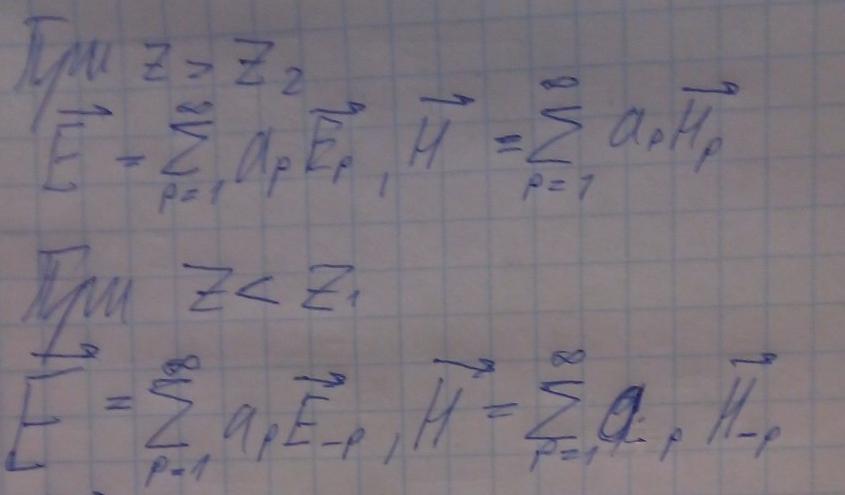 При z > z₂
E⃗ = ∑_{p=1}^{∞} a_p E⃗_p, H⃗ = ∑_{p=1}^{∞} a_p H⃗_p
При z < z₁
E⃗ = ∑_{p=1}^{∞} a_p E⃗_{-p}, H⃗ = ∑_{p=1}^{∞} a_{-p} H⃗_{-p}